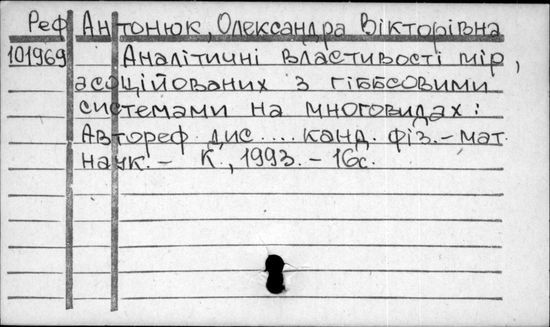 Реф Антонюк, Олександра Вікторівна
101969 Аналітичні властивості мір,
асоційованих з гіббсовими
системами на многовидах:
Автореф. дис .... канд. фіз.-мат.
наук. - К., 1993. - 16с.